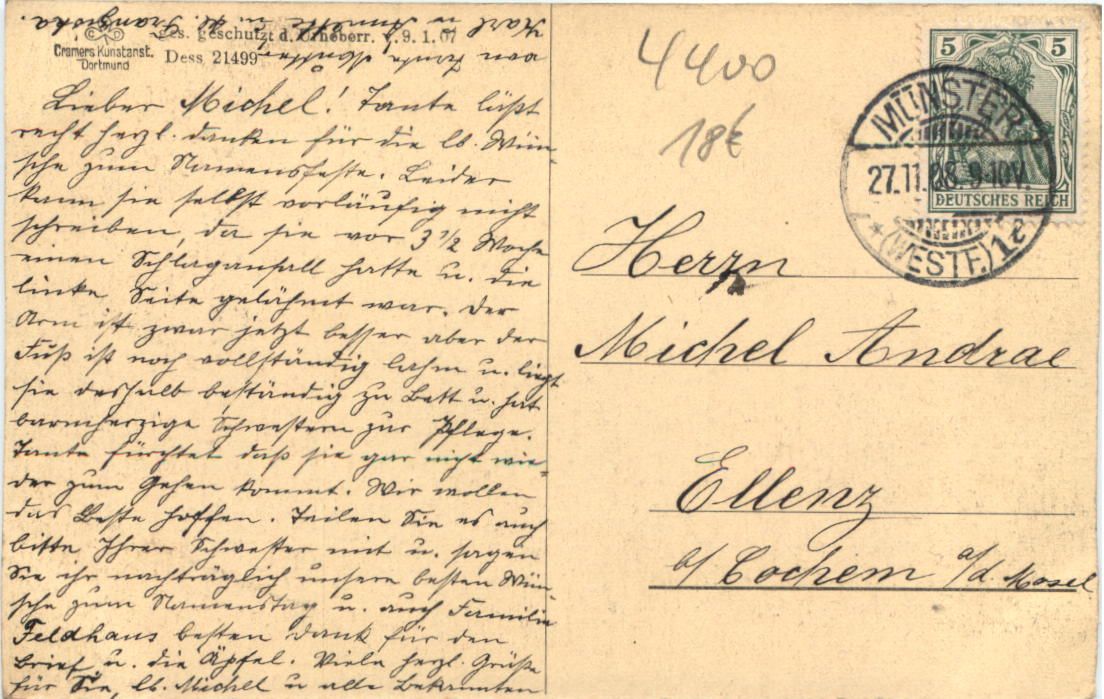 ges. geschützt d. Urheberr. v. 9. 1. 07
Cramers Kunstanst.
Dortmund
Dess 21499
Lieber Michel! Tante läßt
recht herzl. danken für die lb. Wün-
sche zum Namensfeste. Leider
kann sie selbst vorläufig nicht
schreiben, da sie vor 3 1/2 Woche
einen Schlaganfall hatte u. die
linke Seite gelähmt war. Der
Arm ist zwar jetzt besser aber der
Fuß ist noch vollständig lahm u. liegt
sie deshalb beständig zu Bett u. hat
barmherzige Schwestern zur Pflege.
Tante fürchtet daß sie gar nicht wie-
der zum Gehen kommt. Wir wollen
das Beste hoffen. Teilen Sie es auch
bitte Ihrer Schwester mit u. sagen
Sie ihr nachträglich unsere besten Wün-
sche zum Namenstag u. auch Familie
Feldhaus besten Dank für den
Brief u. die Äpfel. Viele herzl. Grüße
für Sie, lb. Michel u alle Bekannten
von Tante
Karl u Annette u. Franziska.
4400
18€
5 5
DEUTSCHES REICH
MÜNSTER
27.11.08. 9-10V.
* (WESTF.) 1 e
Herrn
Michel Andrae
Ellenz
b/ Cochem a/d. Mosel